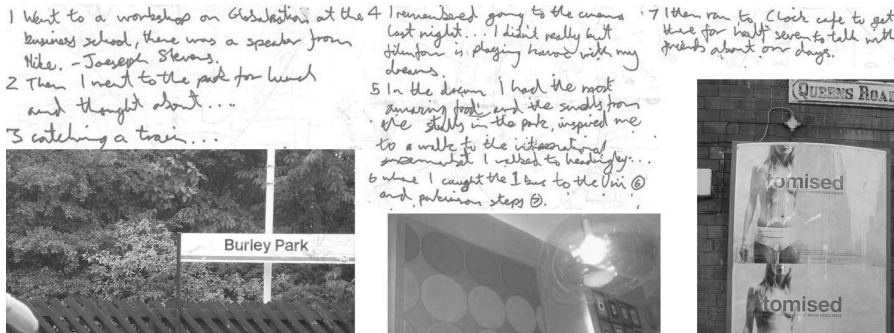 1 Went to a workshop on Globalisation at the
business school, there was a speaker from
Nike. - Joeseph Stevens.
2 Then I went to the park for lunch
and thought about....
3 catching a train...
Burley Park
4 I remembered going to the cinema
last night... I didn't really but
filmfan is playing havoc with my
dreams.
5 In the dream I had the most
amazing food and the smells from
the stalls in the park, inspired me
to a walk to the international
supermarket I walked to headingley...
6 where I caught the 1 bus to the Uni ⑥
and parkinson steps ⑦.
7 I then ran to Clock cafe to get
there for half seven to talk with
friends about our days.
QUEENS ROAD
tomised
tomised